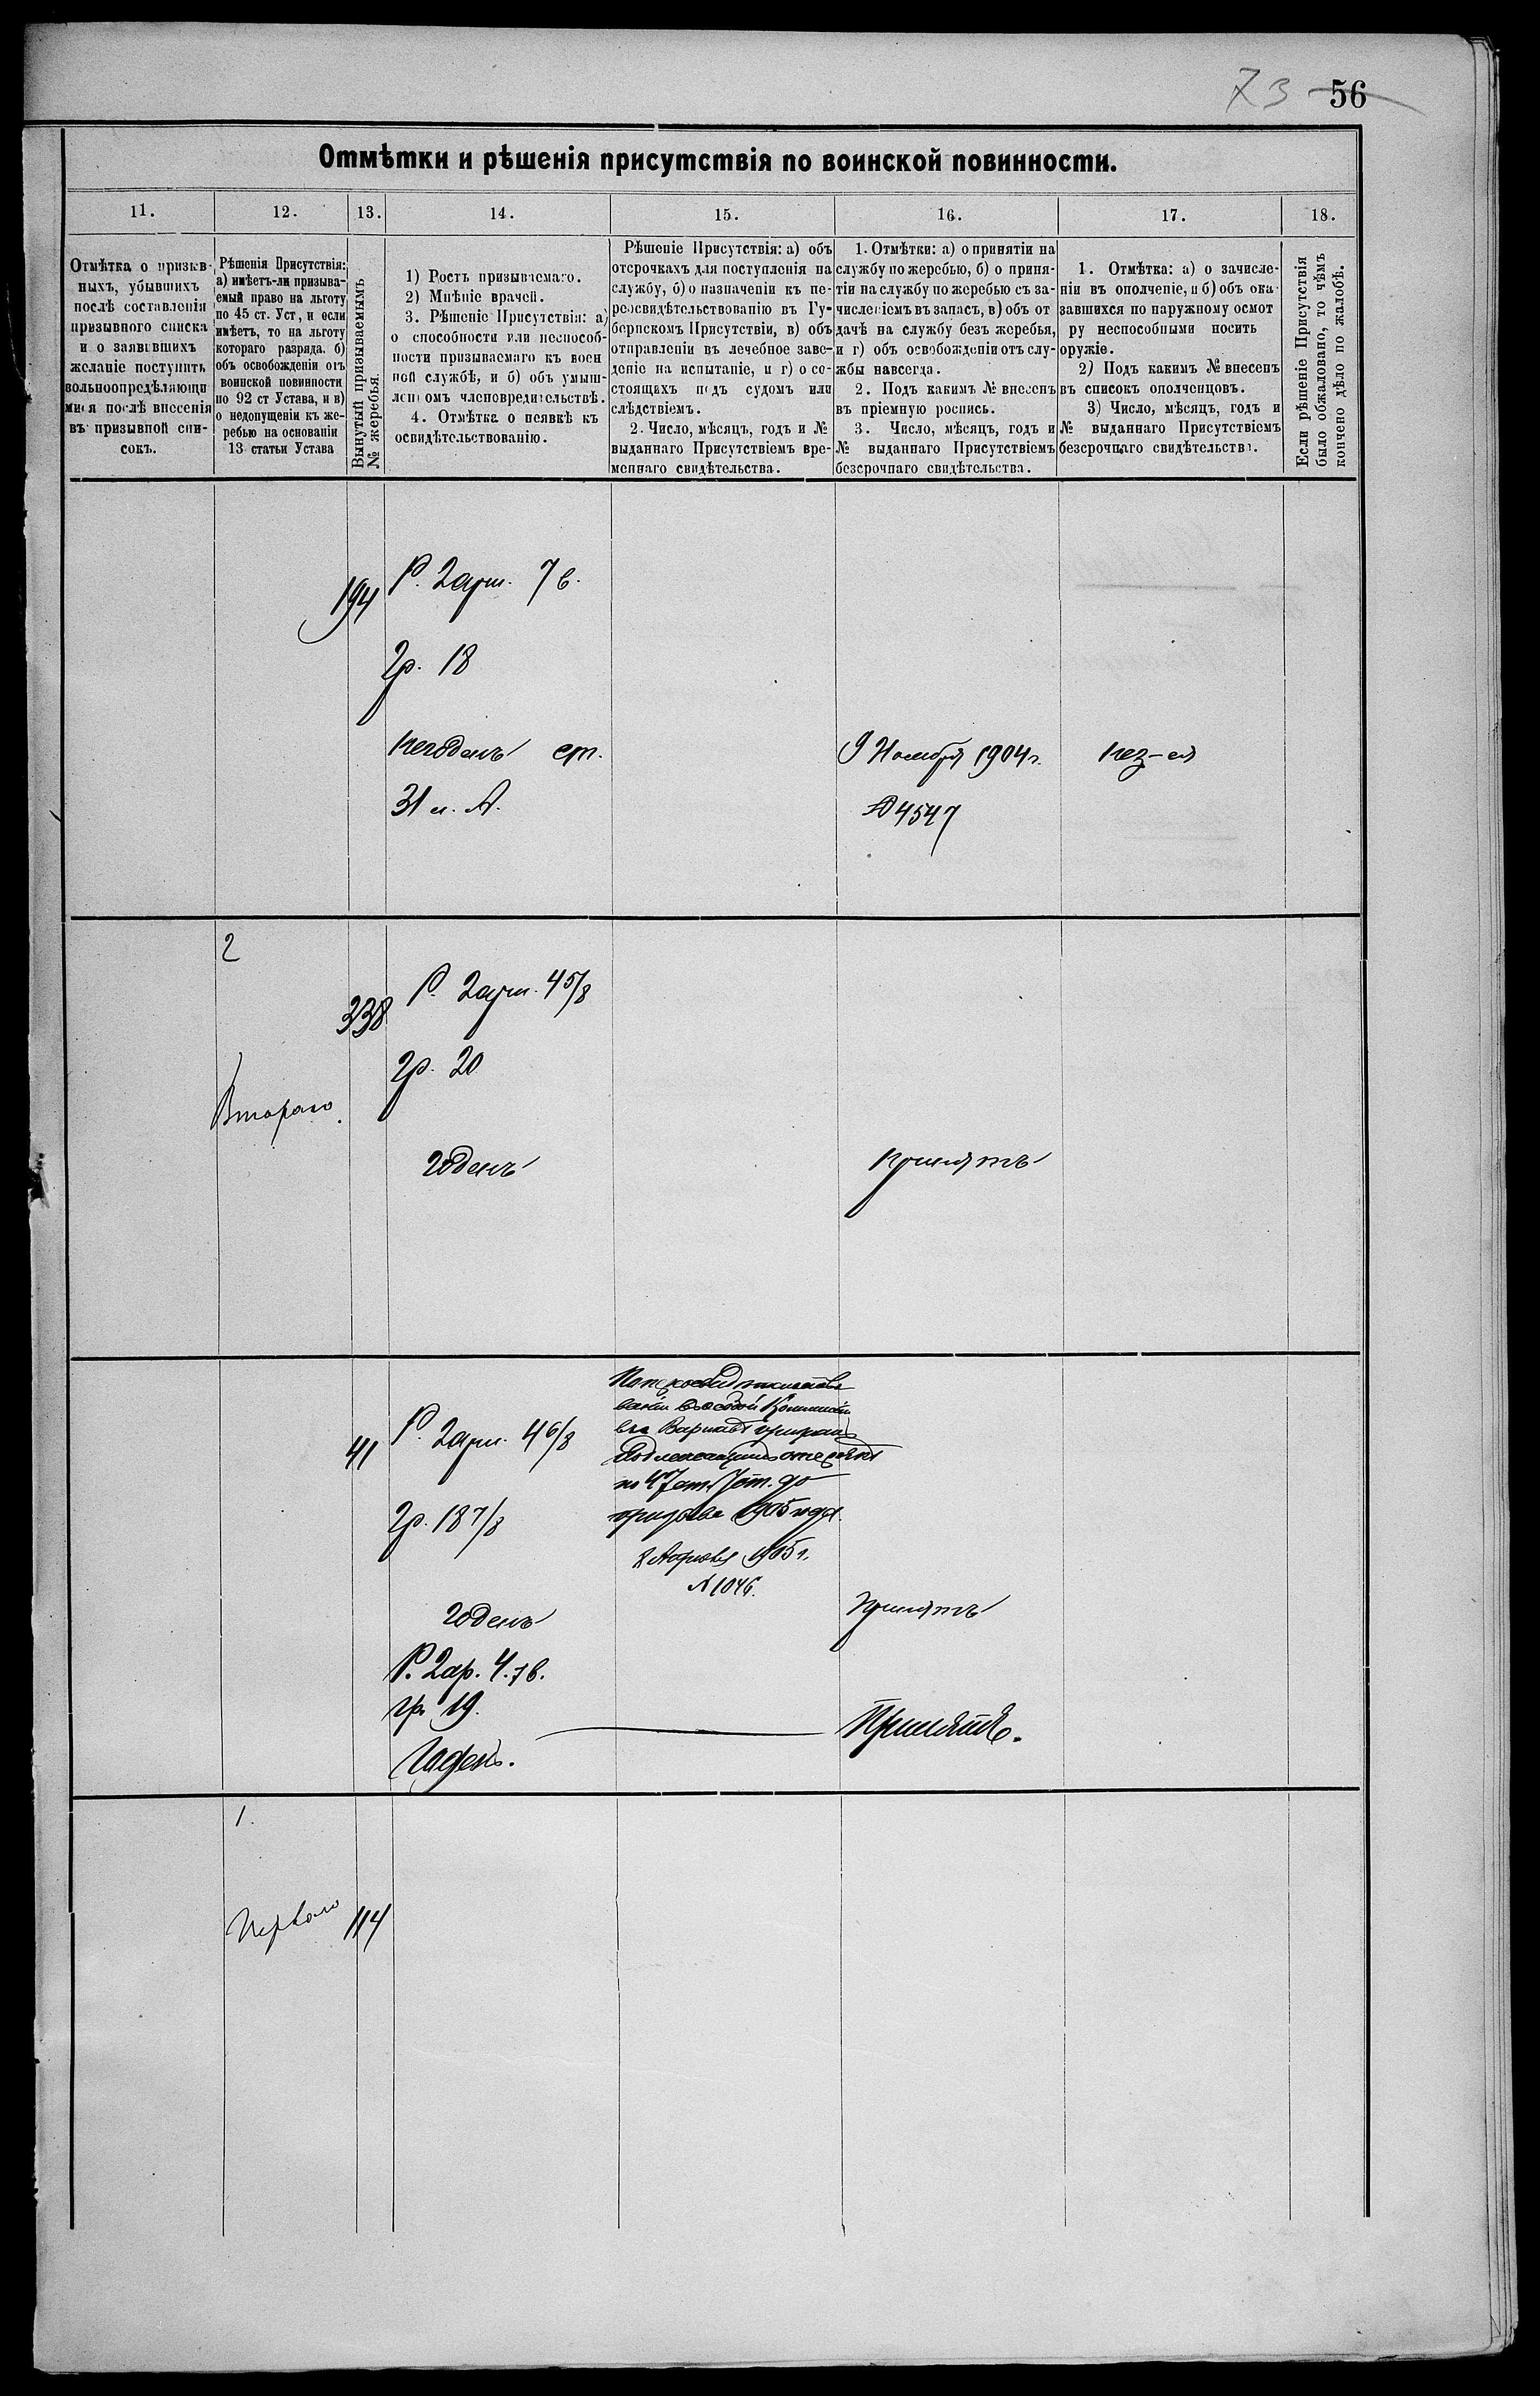 73 56
Отмѣтки и рѣшенія присутствія по воинской повинности.
11. 12. 13. 14. 15. 16. 17. 18.
Отмѣтка о призыв-
ныхъ, убывшихъ
послѣ составленія
призывного списка
и о заявившихъ
желаніе поступить
вольноопредѣляющи
мися послѣ внесенія
въ призывной спи-
сокъ.
Рѣшенія Присутствія:
а) имѣетъ-ли призыва-
емый право на льготу
по 45 ст. Уст, и если
имѣетъ, то на льготу
котораго разряда. б)
объ освобожденіи отъ
воинской повинности
по 92 ст Устава, и в)
о недопущеніи къ же-
ребью на основаніи
13 статьи Устава
Вынутый призываемымъ
№ жеребья.
1) Ростъ призываемаго.
2) Мнѣніе врачей.
3. Рѣшеніе Присутствія: а)
о способности или неспособ-
ности призываемаго къ воен
ной службѣ, и б) объ умыш-
ленномъ членовредительствѣ.
4. Отмѣтка о неявкѣ къ
освидѣтельствованію.
Рѣшеніе Присутствія: а) объ
отсрочкахъ для поступленія на
службу, б) о назначеніи къ пе-
реосвидѣтельствованію въ Гу-
бернскомъ Присутствіи, в) объ
отправленіи въ лечебное заве-
деніе на испытаніе, и г) о со-
стоящихъ подъ судомъ или
слѣдствіемъ.
2. Число, мѣсяцъ, годъ и №
выданнаго Присутствіемъ вре-
меннаго свидѣтельства.
1. Отмѣтки: а) о принятіи на
службу по жеребью, б) о приня-
тіи на службу по жеребью съ за-
численіемъ въ запасъ, в) объ от
дачѣ на службу безъ жеребья,
и г) объ освобожденіи отъ слу-
жбы навсегда.
2. Подъ какимъ № внесенъ
въ пріемную роспись.
3. Число, мѣсяцъ, годъ и
№ выданнаго Присутствіемъ
безсрочнаго свидѣтельства.
1. Отмѣтка: а) о зачисле-
ніи въ ополченіе, и б) объ ока-
завшихся по наружному осмот
ру неспособными носить
оружіе.
2) Подъ какимъ № внесенъ
въ списокъ ополченцовъ.
3) Число, мѣсяцъ, годъ и
№ выданнаго Присутствіемъ
безсрочнаго свидѣтельства.
Если рѣшеніе Присутствія
было обжаловано, то чѣмъ
кончено дѣло по жалобѣ.
194
Р. 2 арш. 7 в.
Гр. 18
негоденъ ст.
31 л. А.
9 Ноября 1904 г.
№ 4547
нез-ся
2
Второго.
338
Р. 2 арш. 4 5/8
гр. 20
годенъ
принятъ
41
Р. 2 арш. 4 6/8
гр. 18 7/8
годенъ
Р. 2 ар. 4.7 в.
гр. 19.
Годенъ.
по 47 ст. Уст. до
призыва 1905 года
1905 г.
№ 1046.
принятъ
Принятъ.
1.
Перваго
114